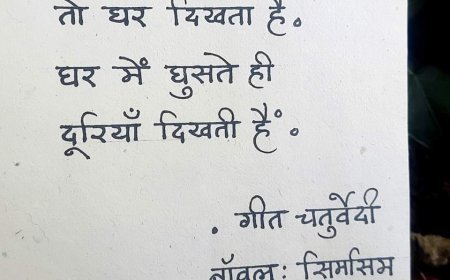 तो घर दिखता है।
घर में घुसते ही
दूरियाँ दिखती हैं।
. गीत चतुर्वेदी
नॉवल: सिमसिम